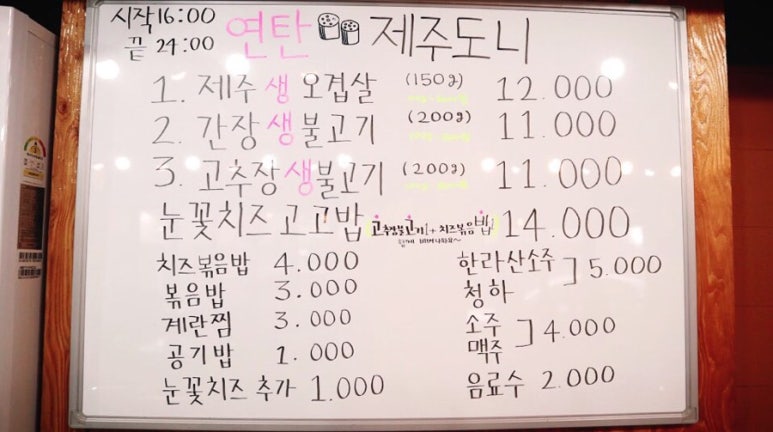 시작 16:00
끝 24:00
연탄 제주도니
1. 제주 생 오겹살 (150g) 12.000
2. 간장 생 불고기 (200g) 11.000
3. 고추장 생불고기 (200g) 11.000
눈꽃치즈 고고밥 고추장불고기 + 치즈볶음밥 14.000
함께
치즈볶음밥 4.000
볶음밥 3.000
계란찜 3.000
공기밥 1.000
눈꽃치즈 추가 1.000
한라산소주
청하 ] 5.000
소주
맥주 ] 4.000
음료수 2.000